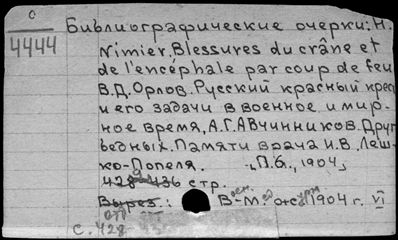 С
4444
Библиографические очерки: H.
Nimier. Blessures du crâne et
de l'encéphale par coup de feu
В.Д. Орлов. Русский красный крест
и его задачи в военное и мир-
ное время, А.Г. Авчинников. Друг
бедных. Памяти врача И.В. Леш-
ко-Попеля. „П.б., 1904„
428-436 стр.
Вырез.: В-М. 1904 г. VI
с. 428